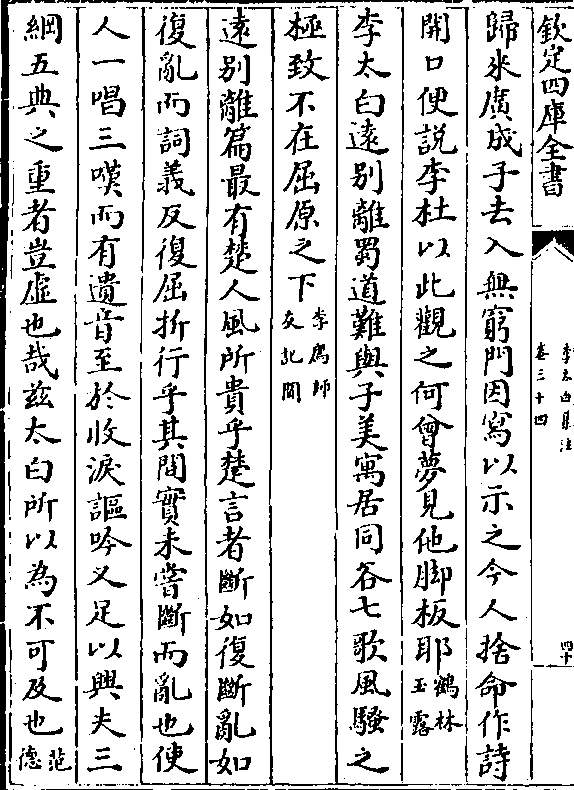 欽定四庫全書
李太白集注
卷三十四
四十
歸來廣成子去入無窮門因寫以示之今人捨命作詩
開口便說李杜以此觀之何曾夢見他脚板耶鶴林玉露
李太白遠别離蜀道難與子美寓居同谷七歌風騷之
極致不在屈原之下李廌師友記聞
遠别離篇最有楚人風所貴乎楚言者斷如復斷亂如
復亂而詞義反復屈折行乎其間實未嘗斷而亂也使
人一唱三嘆而有遺音至於收淚謳吟又足以興夫三
綱五典之重者豈虛也哉兹太白所以為不可及也范德